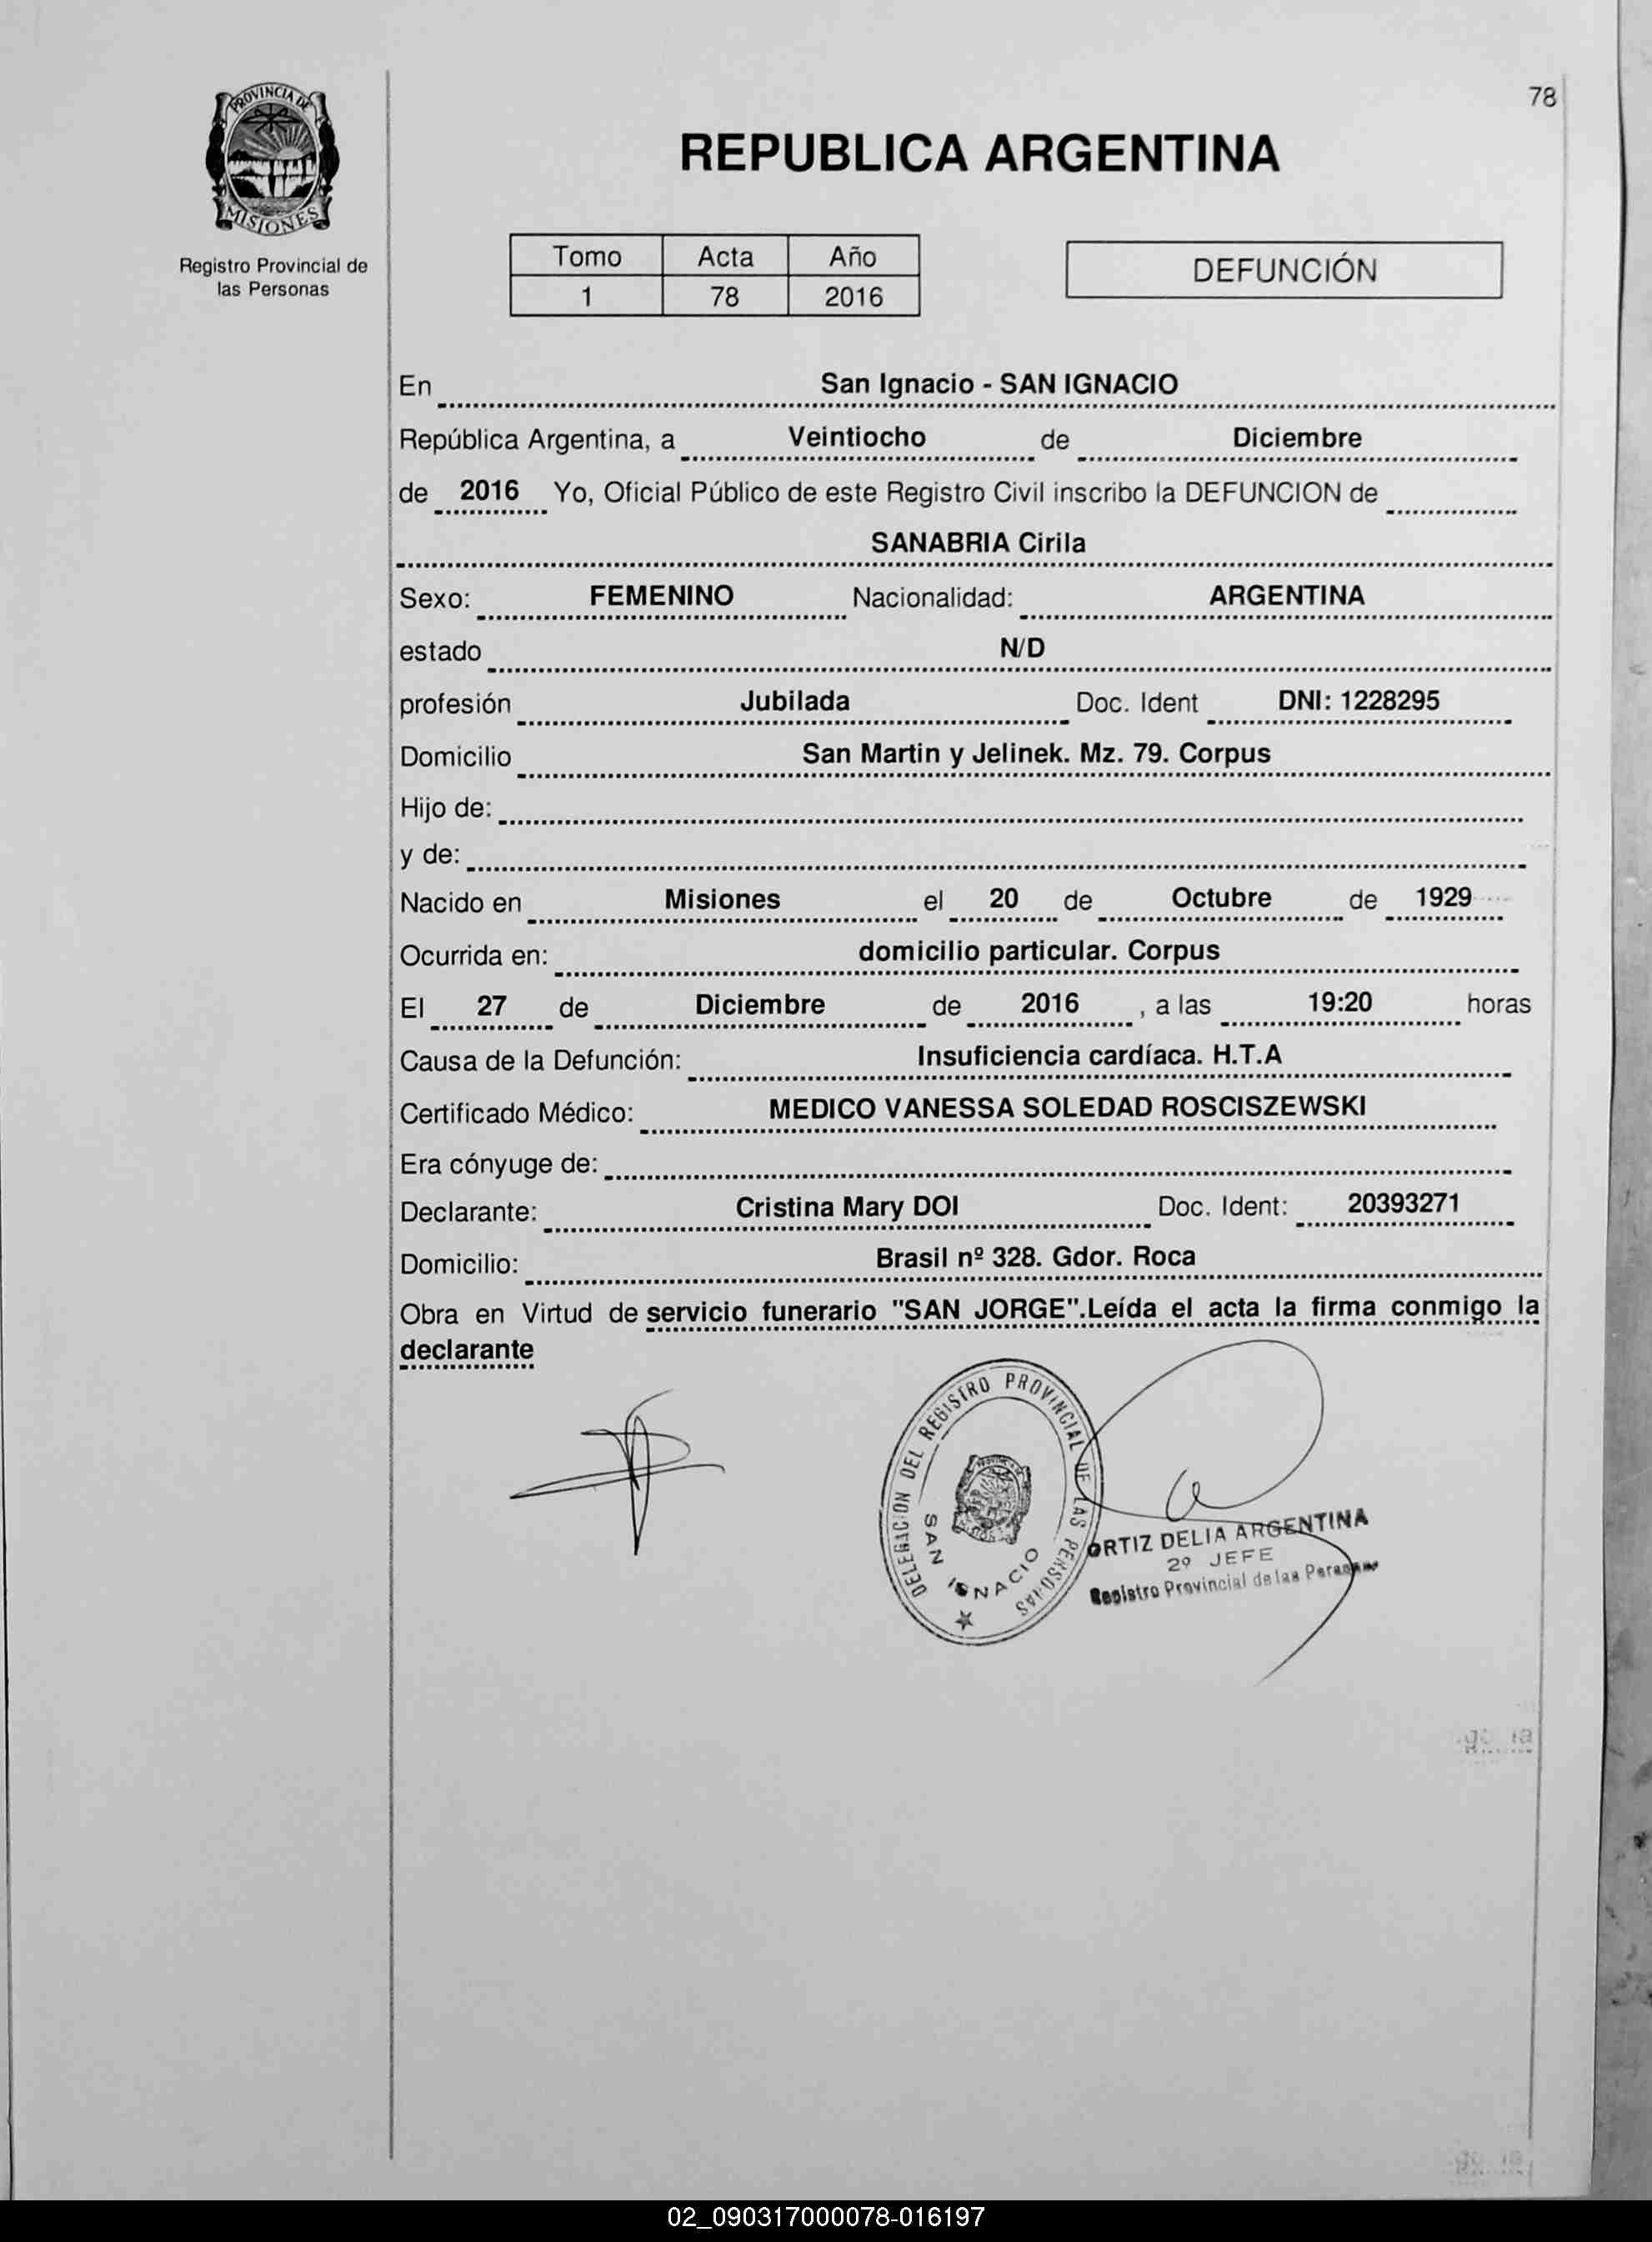 78
PROVINCIA DE
MISIONES
Registro Provincial de
las Personas
REPUBLICA ARGENTINA
Tomo Acta Año
1 78 2016
DEFUNCIÓN
En San Ignacio - SAN IGNACIO
República Argentina, a Veintiocho de Diciembre
de 2016 Yo, Oficial Público de este Registro Civil inscribo la DEFUNCION de
SANABRIA Cirila
Sexo: FEMENINO Nacionalidad: ARGENTINA
estado N/D
profesión Jubilada Doc. Ident DNI: 1228295
Domicilio San Martin y Jelinek. Mz. 79. Corpus
Hijo de:
y de:
Nacido en Misiones el 20 de Octubre de 1929
Ocurrida en: domicilio particular. Corpus
El 27 de Diciembre de 2016 , a las 19:20 horas
Causa de la Defunción: Insuficiencia cardíaca. H.T.A
Certificado Médico: MEDICO VANESSA SOLEDAD ROSCISZEWSKI
Era cónyuge de:
Declarante: Cristina Mary DOI Doc. Ident: 20393271
Domicilio: Brasil nº 328. Gdor. Roca
Obra en Virtud de servicio funerario "SAN JORGE".Leída el acta la firma conmigo la
declarante
DELEGACION DEL REGISTRO PROVINCIAL DE LAS PERSONAS
SAN IGNACIO
ORTIZ DELIA ARGENTINA
2º JEFE
Registro Provincial de las Personas
02_090317000078-016197